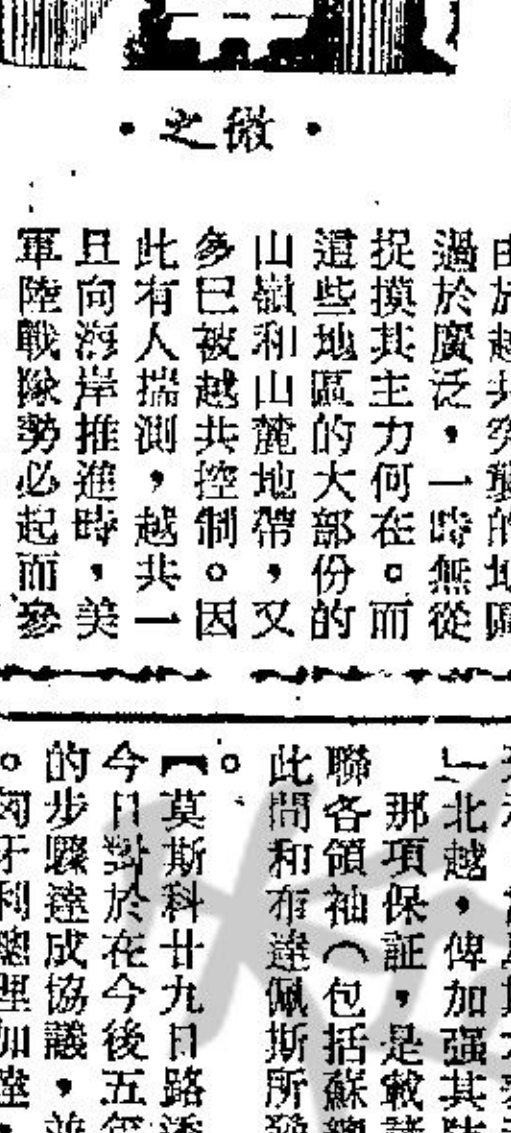 ・微之・
由於越共突襲的地區
過於廣泛，一時無從
捉摸其主力何在。而
這些地區的大部份的
山嶺和山麓地帶，又
多已被越共控制。因
此有人揣測，越共一
且向海岸推進時，美
軍陸戰隊勢必起而參
」北越，俾加强其
那項保証，是載
聯各領袖（包括蘇
此間和布達佩斯所
。
【莫斯科廿九日路透
今日對於在今後五年
的步驟達成協議，並
。匈牙利總理加達